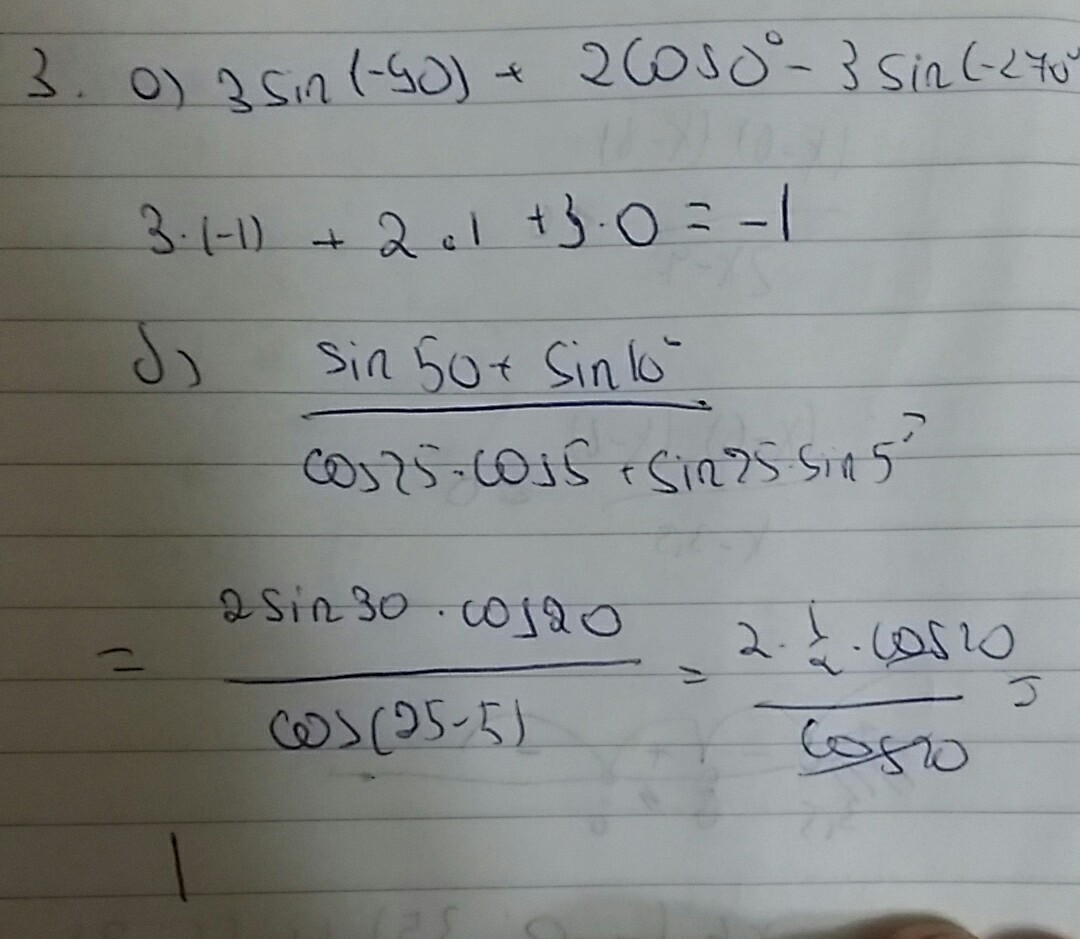 3. a) 3 sin (-90) + 2 cos 0° - 3 sin (-270°
3·(-1) + 2·1 + 3·0 = -1
б) (sin 50 + sin 10°) / (cos 25·cos 5 + sin 25·sin 5°)
= (2 sin 30 · cos 20) / (cos (25-5)) = (2·1/2·cos 20) / (cos 20) =
1